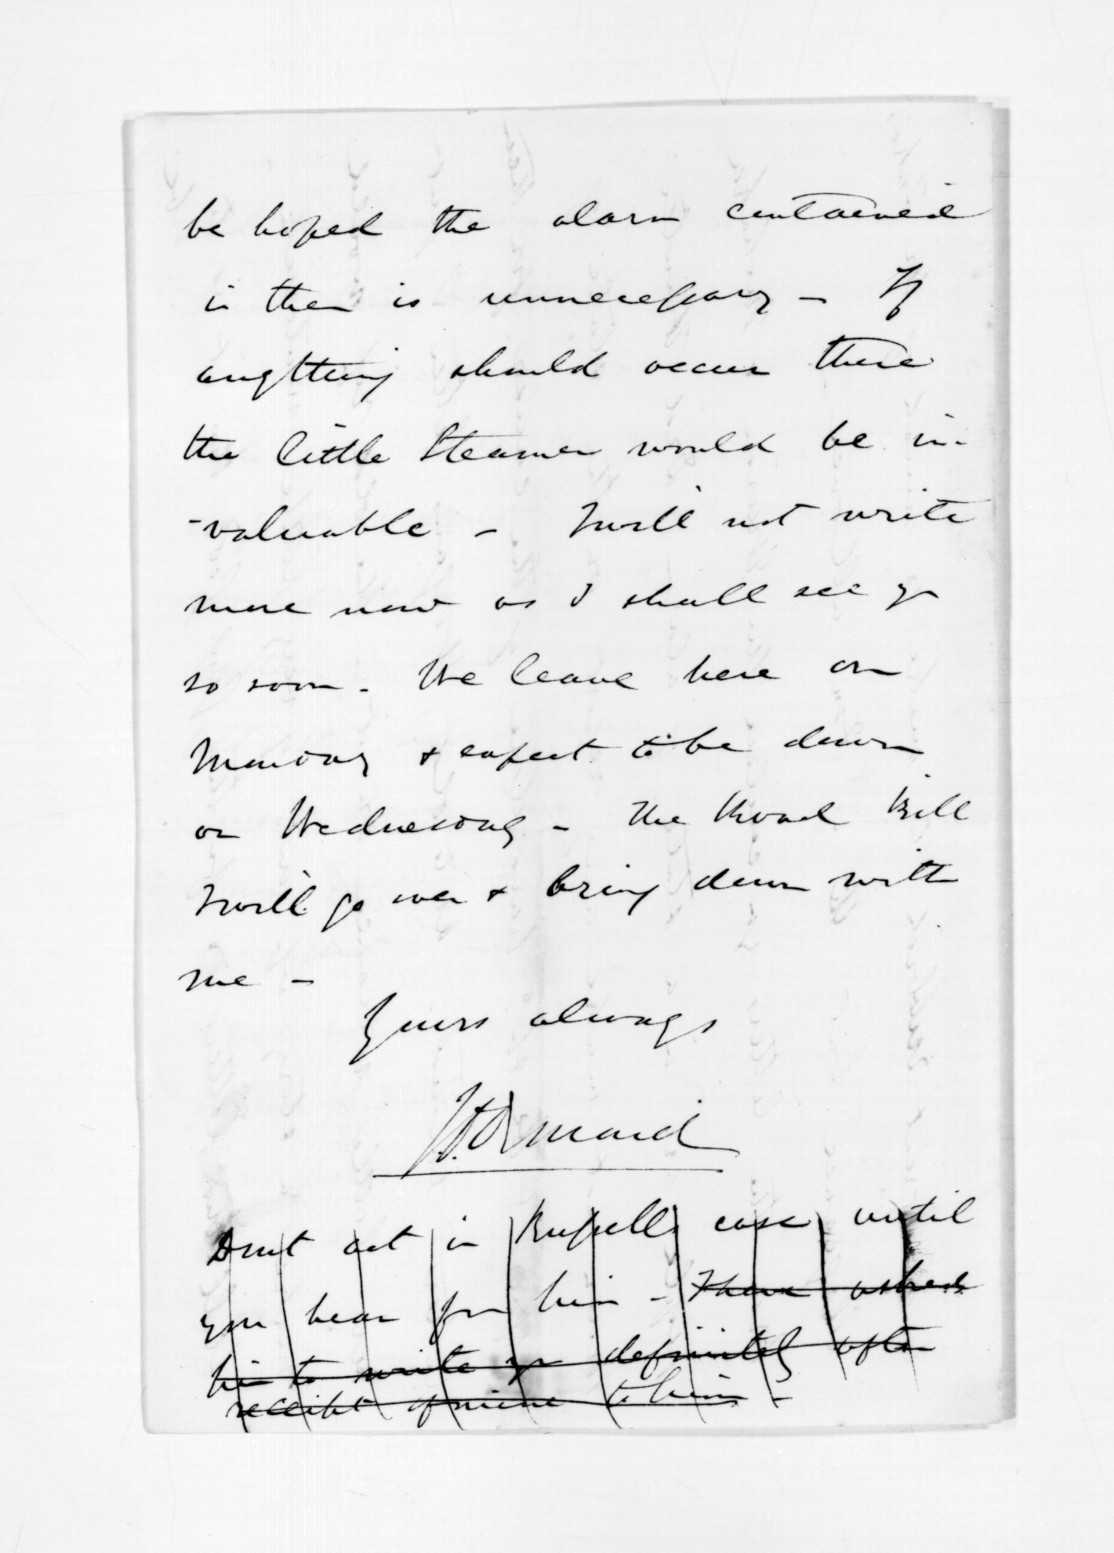 be hoped the alarm contained
in them is unnecessary – If
anything should occur there
the little Steamer would be in-
-valuable – I will not write
more now as I shall see yr
so soon – We leave here on
Monday & expect to be down
on Wednesday – The Road Bill
I will go over & bring down with
me –
Yours always
J. D. Ormond
Dont act in Russells case until
you hear from him – I have asked
him to write yr definitely after
receipt of mine to him –